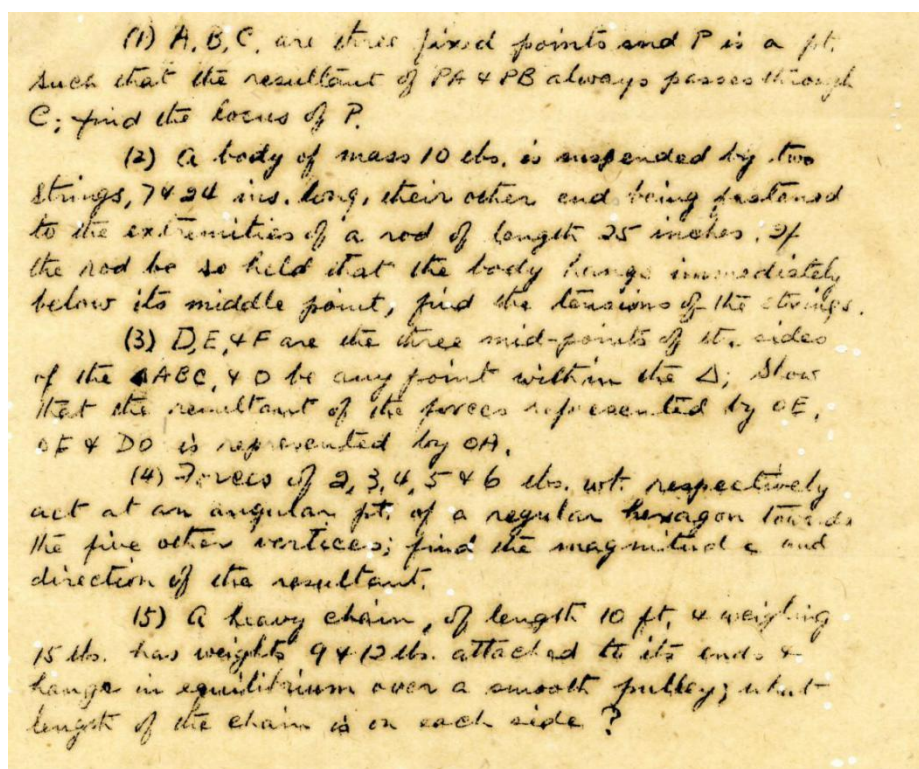 (1) A, B, C, are three fixed points and P is a pt.
such that the resultant of PA & PB always passes through
C; find the locus of P.
(2) A body of mass 10 lbs. is suspended by two
strings, 7 & 24 ins. long, their other end being fastened
to the extremities of a rod of length 25 inches. If
the rod be so held that the body hangs immediately
below its middle point, find the tensions of the strings.
(3) D, E, & F are the three mid-points of the sides
of the ΔABC, & O be any point within the Δ; Show
that the resultant of the forces represented by OE,
OF & DO is represented by OA.
(4) Forces of 2, 3, 4, 5 & 6 lbs. wt. respectively
act at an angular pt. of a regular hexagon towards
the five other vertices; find the magnitude and
direction of the resultant.
(5) A heavy chain, of length 10 ft, & weighing
15 lbs. has weights 9 & 12 lbs. attached to its ends &
hangs in equilibrium over a smooth pulley; what
length of the chain is on each side?